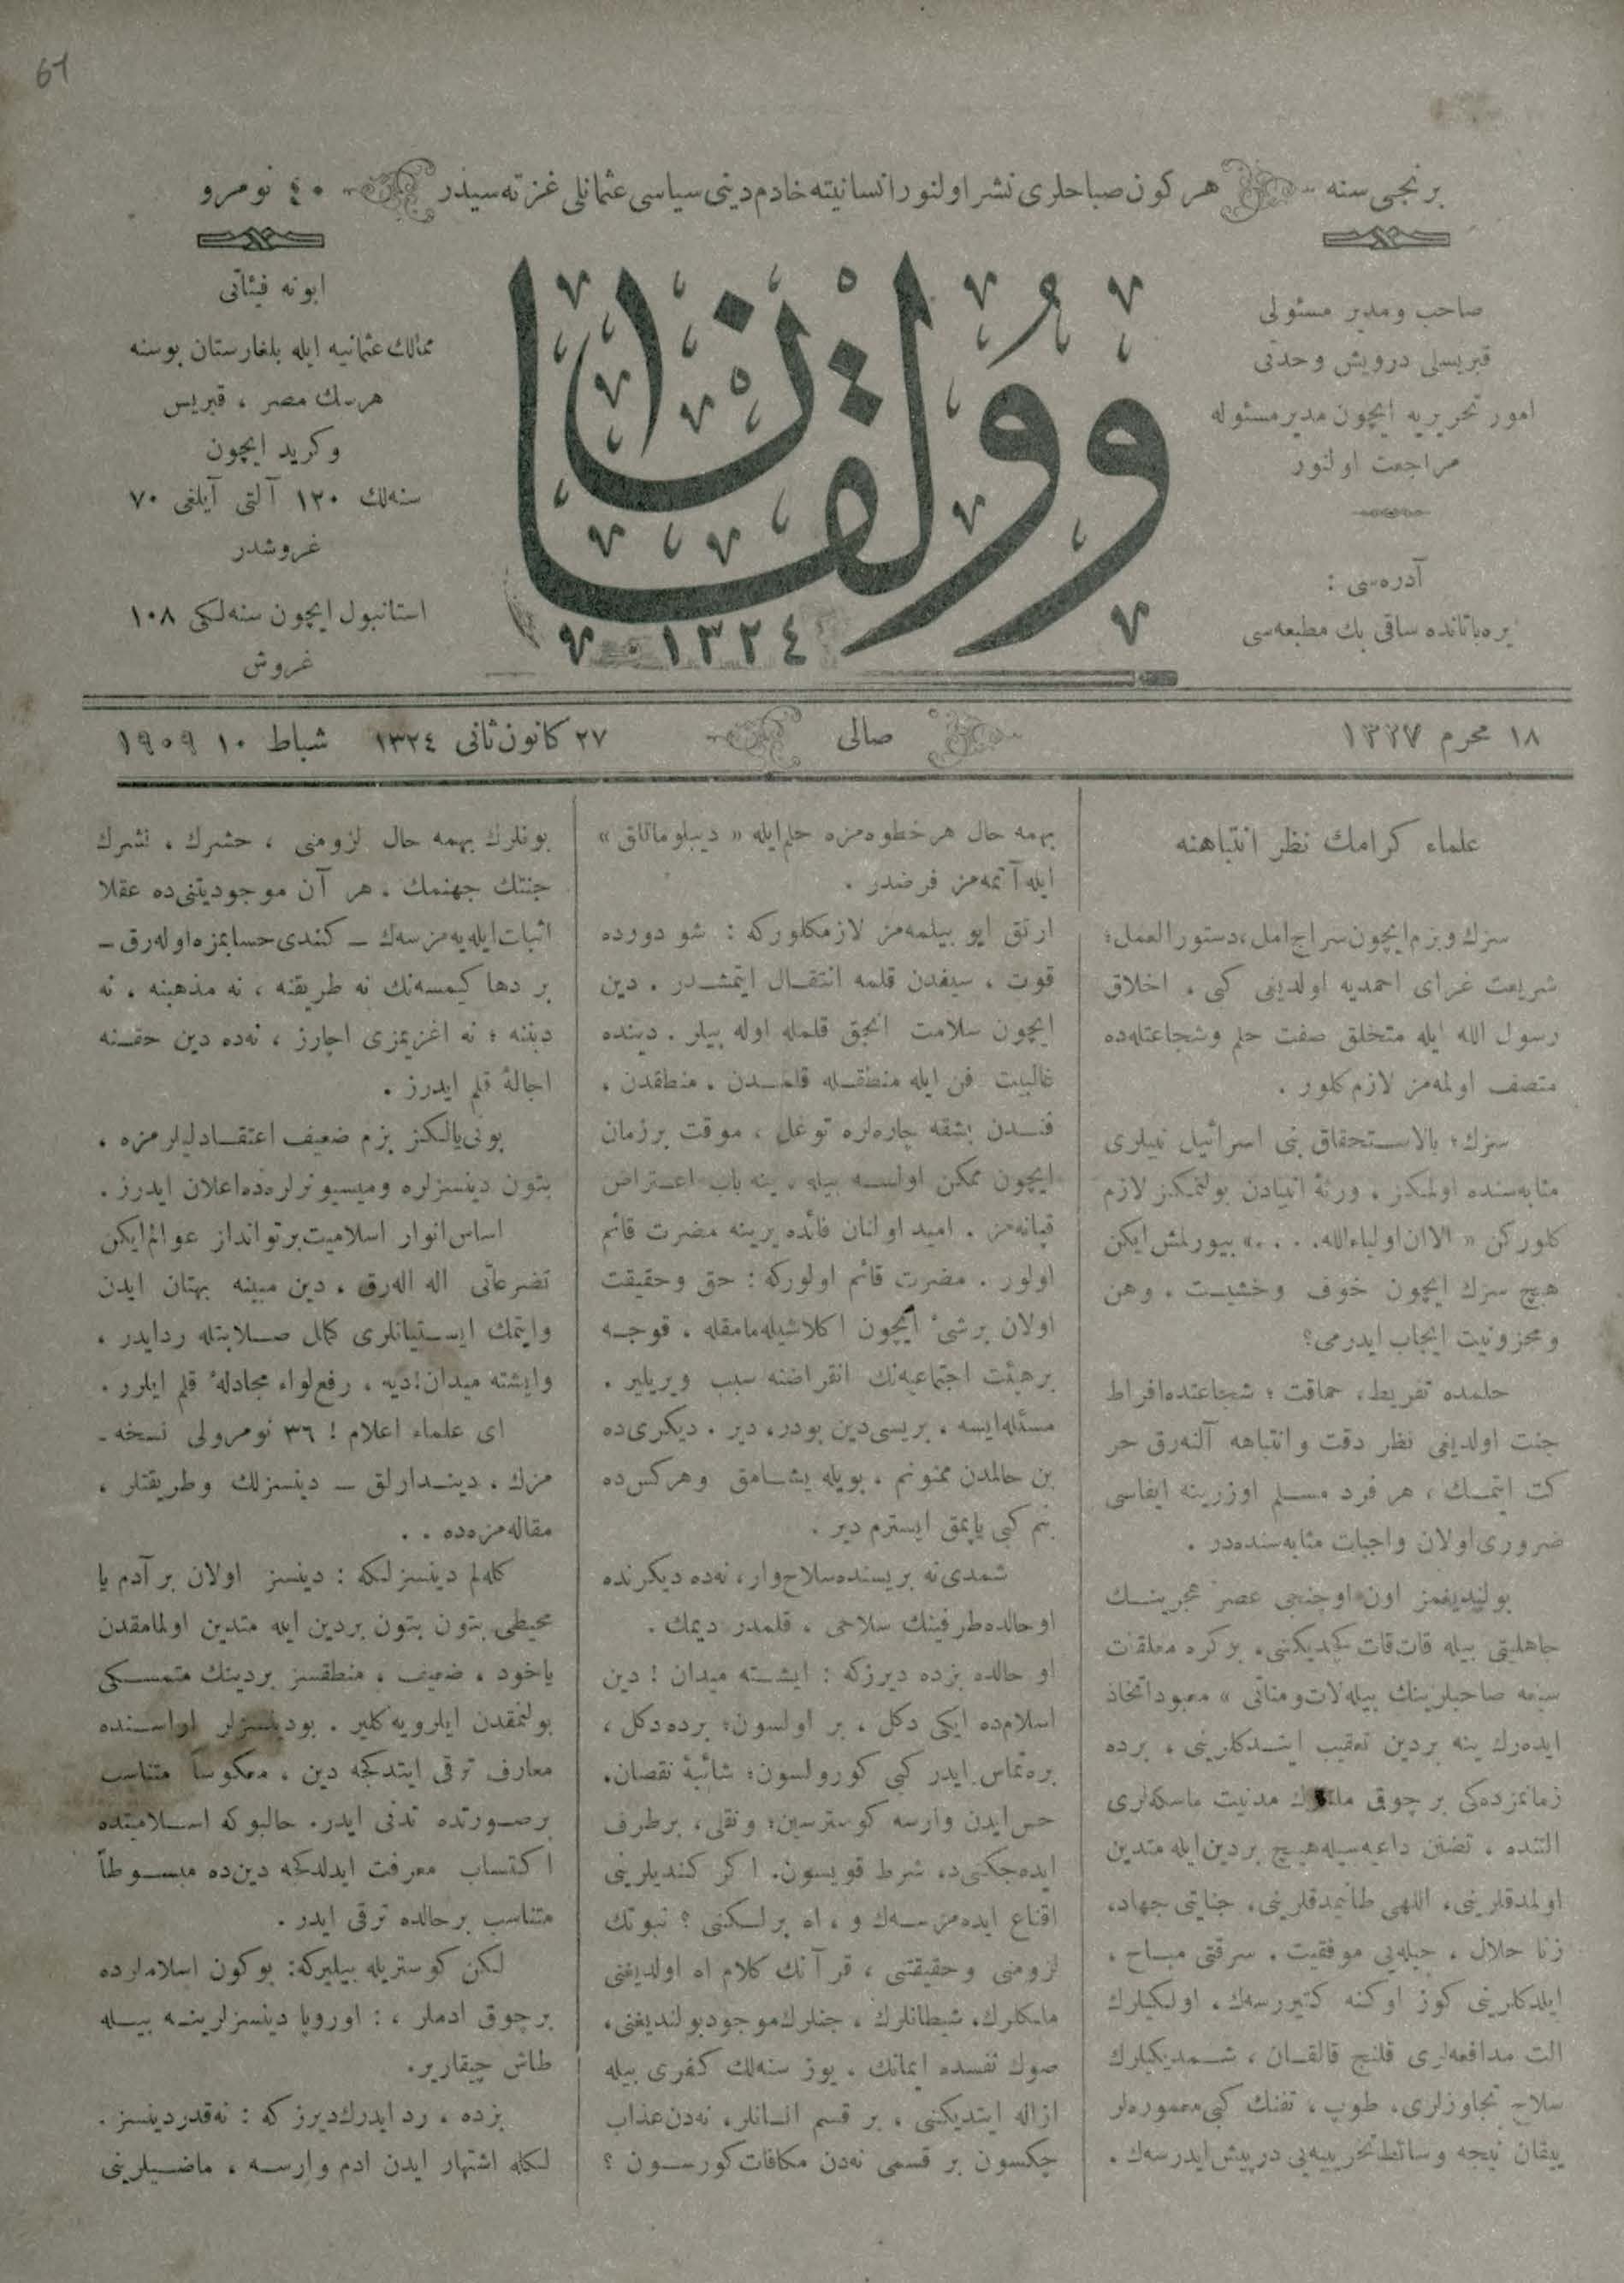 61
برنجی سنه
هركون صباحلری نشر اولنور انسانیته خادم دینی سیاسی عثمانلی غزته سیدر
٤٠ نومرو
صاحب و مدیر مسئولی
قبریسلی درویش وحدتی
امور تحریریه ایچون مدیر مسئوله
مراجعت اولنور
آدره‌سی :
یره‌باتانده ساقی بك مطبعه‌سی
وولقان
١٣٢٤
ابونه فیئاتی
ممالك عثمانیه ایله بلغارستان بوسنه
هرسك مصر ، قبریس
وكرید ایچون
سنه‌لك ١٢٠ آلتی آیلغی ٧٠
غروشدر
استانبول ایچون سنه‌لكی ١٠٨
غروش
١٨ محرم ١٣٢٧
صالی
٢٧ كانون ثانی ١٣٢٤ شباط ١٠ ١٩٠٩
علماء كرامك نظر انتباهنه
سزك و بزم ایچون سراج امل، دستورالعمل؛
شریعت غرای احمدیه اولدیغی كبی . اخلاق
رسول الله ایله متخلق صفت حلم وشجاعتله‌ده
متصف اولمه‌مز لازم كلور .
سزك؛ بالاستحقاق بنی اسرائیل نبیلری
مثابه‌سنده اولمكز ، ورثهٔ انبیادن بولنمكز لازم
كلوركن « الا ان اولیاءالله. . . .» بیورلمش ایكن
هیچ سزك ایچون خوف وخشیت . وهن
ومحزونیت ایجاب ایدرمی؟
حلمده تفریط، حماقت ؛ شجاعتده افراط
جنت اولدیغی نظر دقت وانتباهه آلنه‌رق حر
كت ایتمك ، هر فرد مسلم اوزرینه ایفاسی
ضروری اولان واجبات مثابه‌سنده‌در .
بولندیغمز اون اوچنجی عصر هجرینك
جاهلیتی بیله قات قات كچدیكنی، بركره معلقات
سبعه صاحبلرینك بیله لات ومناتی » معبود اتخاذ
ایده‌رك ینه بردین تعقیب ایتدكلرینی ، برده
زمانمزده‌كی برچوق مدنیت ماسكه‌لری
التنده ، تفنن داعیه‌سیله هیچ بردین ایله متدین
اولمدقلرینی، اللهی طانیمدقلرینی، جنایتی جهاد،
زنا حلال ، حیله‌یی موفقیت . سرقتی مباح ،
ایلدكلرینی كوز اوكنه كتیررسه‌ك، اولكیلرك
الت مدافعه‌لری قلنج قالقان ، شمدیكیلرك
سلاح تجاوزلری، طوپ، تفنك كبی معموره‌لر
ییقان نیجه وسائط تخریبیه‌یی درپیش ایدرسه‌ك .
بهمه حال هرخطوه‌مزه حلم ایله « دیپلوماتلق »
ایله آتمه‌مز فرضدر .
ارتق ایو بیلمه‌مز لازمكلوركه : شو دورده
قوت ، سیفدن قلمه انتقال ایتمشدر . دین
ایچون سلامت انجق قلمله اوله بیلر . دینده
غالبیت فن ایله منطقله قلمدن . منطقدن .
فندن بشقه چاره‌لره توغل ، موقت برزمان
ایچون ممكن اولسه بیله ، ینه باب اعتراض
قپانه‌مز . امید اولنان فائده یرینه مضرت قائم
اولور . مضرت قائم اولوركه : حق وحقیقت
اولان برشیٔ ایچون اكلاشیله‌مامقله ، قوجه
برهیئت اجتماعیه‌نك انقراضنه سبب ویریلیر .
مسئله ایسه ، بریسی دین بودر، دیر . دیكری‌ده
بن حالمدن ممنونم ، بویله یشامق وهركس‌ده
بنم كبی یاپمق ایسترم دیر .
شمدی نه بریسنده سلاح وار، نه‌ده دیكرنده
اوحالده طرفینك سلاحی ، قلمدر دیمك .
او حالده بزده دیرزكه : ایشته میدان ! دین
اسلام‌ده ایكی دكل ، بر اولسون؛ برده دكل ،
بره تماس ایدر كبی كورولسون؛ شائبهٔ نقصان.
حس ایدن وارسه كوسترسین؛ ونقلی، برطرف
ایده‌جكنی‌ده شرط قویسون. اكر كندیلرینی
اقناع ایده‌مزسه‌ك و ، اه برلكنی ؟ نبوتك
لزومنی وحقیقتنی ، قرآنك كلام اه اولدیغنی
ملكلرك، شیطانلرك ، جنلرك موجود بولندیغنی،
صوك نفسده ایمانك ، یوز سنه‌لك كفری بیله
ازاله ایتدیكنی ، بر قسم انسانلر، نه‌دن عذاب
چكسون بر قسمی نه‌دن مكافات كورسون ؟
بونلرك بهمه حال لزومنی ، حشرك ، نشرك
جنتك جهنمك . هر آن موجودیتنی‌ده عقلا
اثبات ایلیه‌مزسه‌ك ــ كندی حسابمزه اوله‌رق ــ
بر دها كیمسه‌نك نه طریقنه ، نه مذهبنه ، نه
دیننه ؛ نه اغزیمزی اچارز ، نه‌ده دین حقنه
اجالهٔ قلم ایدرز .
بونی یالكز بزم ضعیف اعتقادلیلرمزه .
بتون دینسزلره ومیسیونرلره‌ده اعلان ایدرز.
اساس انوار اسلامیت پرتوانداز عوالم ایكن
تضرعاتی اله اله‌رق ، دین مبینه بهتان ایدن
وایتمك ایستیانلری كمال صلابتله ردایدر ،
وایشته میدان! دیه ، رفع لواء مجادلهٔ قلم ایلرر.
ای علماء اعلام ! ٣٦ نومرولی نسخه‌ـ
مزك ، دیندارلق ــ دینسزلك وطریقتلر ،
مقاله‌مزه‌ده . .
كله‌لم دینسزلكه : دینسز اولان برآدم یا
محیطی بتون بتون بردین ایله متدین اولمامقدن
یاخود ، ضعیف ، منطقسز بردینك متمسكی
بولنمقدن ایلرویه كلیر . بودینسزلر اراسنده
معارف ترقی ایتدكجه دین ، معكوساً متناسب
برصورتده تدنی ایدر. حالبوكه اسلامیتده
اكتساب معرفت ایدلدكجه دین‌ده مبسوطاً
متناسب برحالده ترقی ایدر .
لكن كوستریله بیلیركه: بوكون اسلاملرده
برچوق ادملر ، : اوروپا دینسزلرینه بیله
طاش چیقاریر.
بزده ، رد ایدرك دیرز كه : نه‌قدر دینسز .
لكله اشتهار ایدن ادم وارسه ، ماضیلرینی